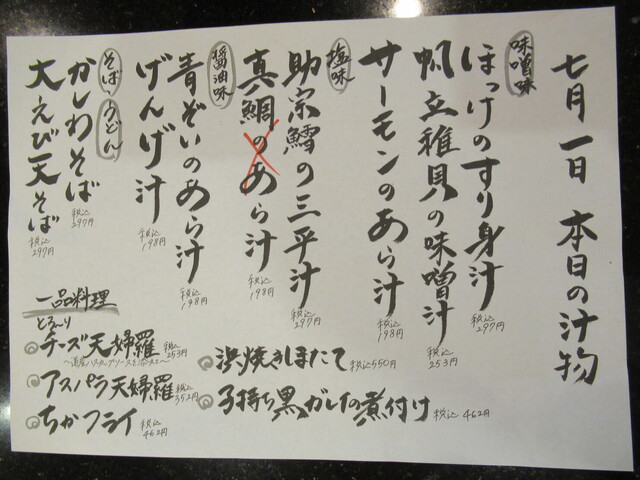 七月一日 本日の汁物
味噌味
ほっけのすり身汁
税込
297円
帆立稚貝の味噌汁
税込
253円
サーモンのあら汁
税込
198円
塩味
助宗鱈の三平汁
税込
297円
真鯛のあら汁
税込
198円
醤油味
青ぞいのあら汁
税込
198円
げんげ汁
税込
198円
そば・うどん
かしわそば
税込
297円
大えび天そば
税込
297円
一品料理
とろ〜り
チーズ天婦羅 税込
253円
アスパラ天婦羅 税込
352円
ちかフライ 税込
462円
浜焼きほたて 税込550円
子持ち黒ガレイの煮付け 税込 462円